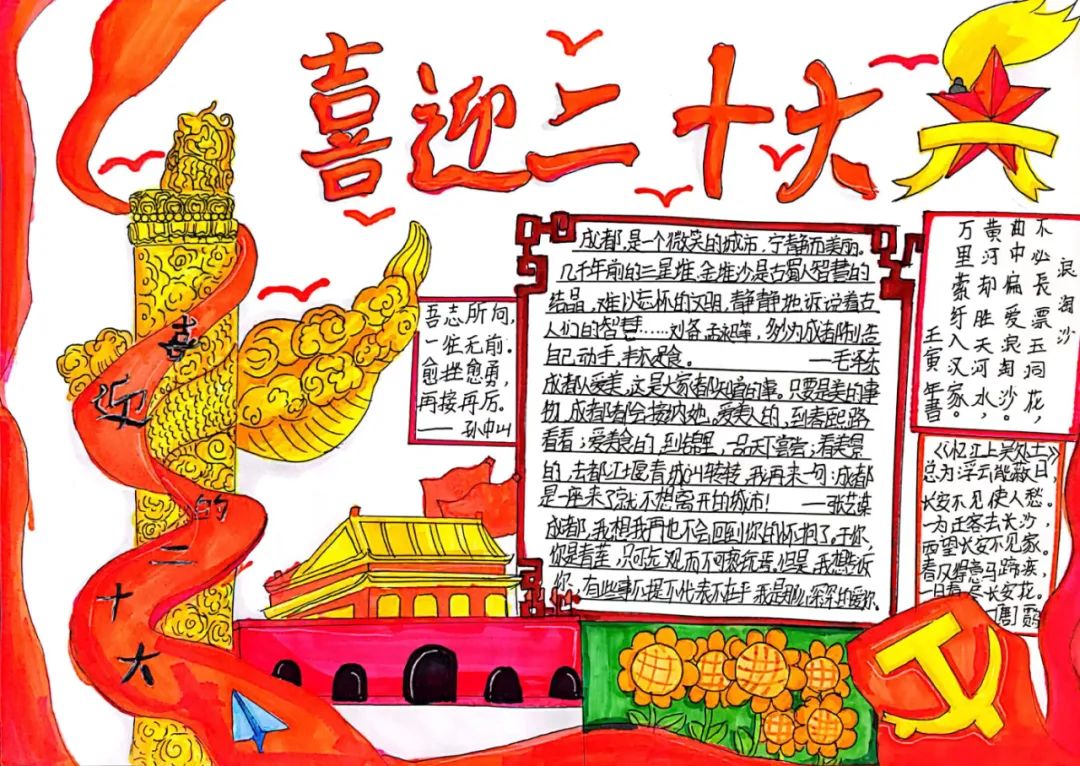 喜迎二十大
喜迎的二十大
吾志所向，
一往无前。
愈挫愈勇，
再接再厉。
—— 孙中山
成都，是一个微笑的城市，宁静而美丽。
几千年前的三星堆、金堆沙是古蜀人智慧的
结晶，难以忘怀的文明，静静地诉说着古
人们的智慧……刘备、孟昶等，多为成都
自己动手，丰衣足食。 —毛泽东
成都人爱美，这是大家都知道的事。只要是美的事
物，成都都会接纳她。爱美人的，到春熙路
看看；爱美食的，到锦里，一品天下尝尝；看美景
的，去都江堰青城山转转，我再来一句：成都
是一座来了就不想离开的城市！ —张艺谋
成都，我想我再也不会回到你的怀抱了。于你，
你是青莲，只可远观而不可亵玩焉，但是，我想告诉
你，有些事不提不代表不在乎，我是那么深深的爱你。
浪淘沙
不必長票五洞花，
曲中偏爱浪淘沙。
黄河却胜天河水，
万里萦纡入汉家。
壬寅年書
《忆江上吴处士》
总为浮云能蔽日，
长安不见使人愁。
一为迁客去长沙，
西望长安不见家。
春风得意马蹄疾，
一日看尽长安花。